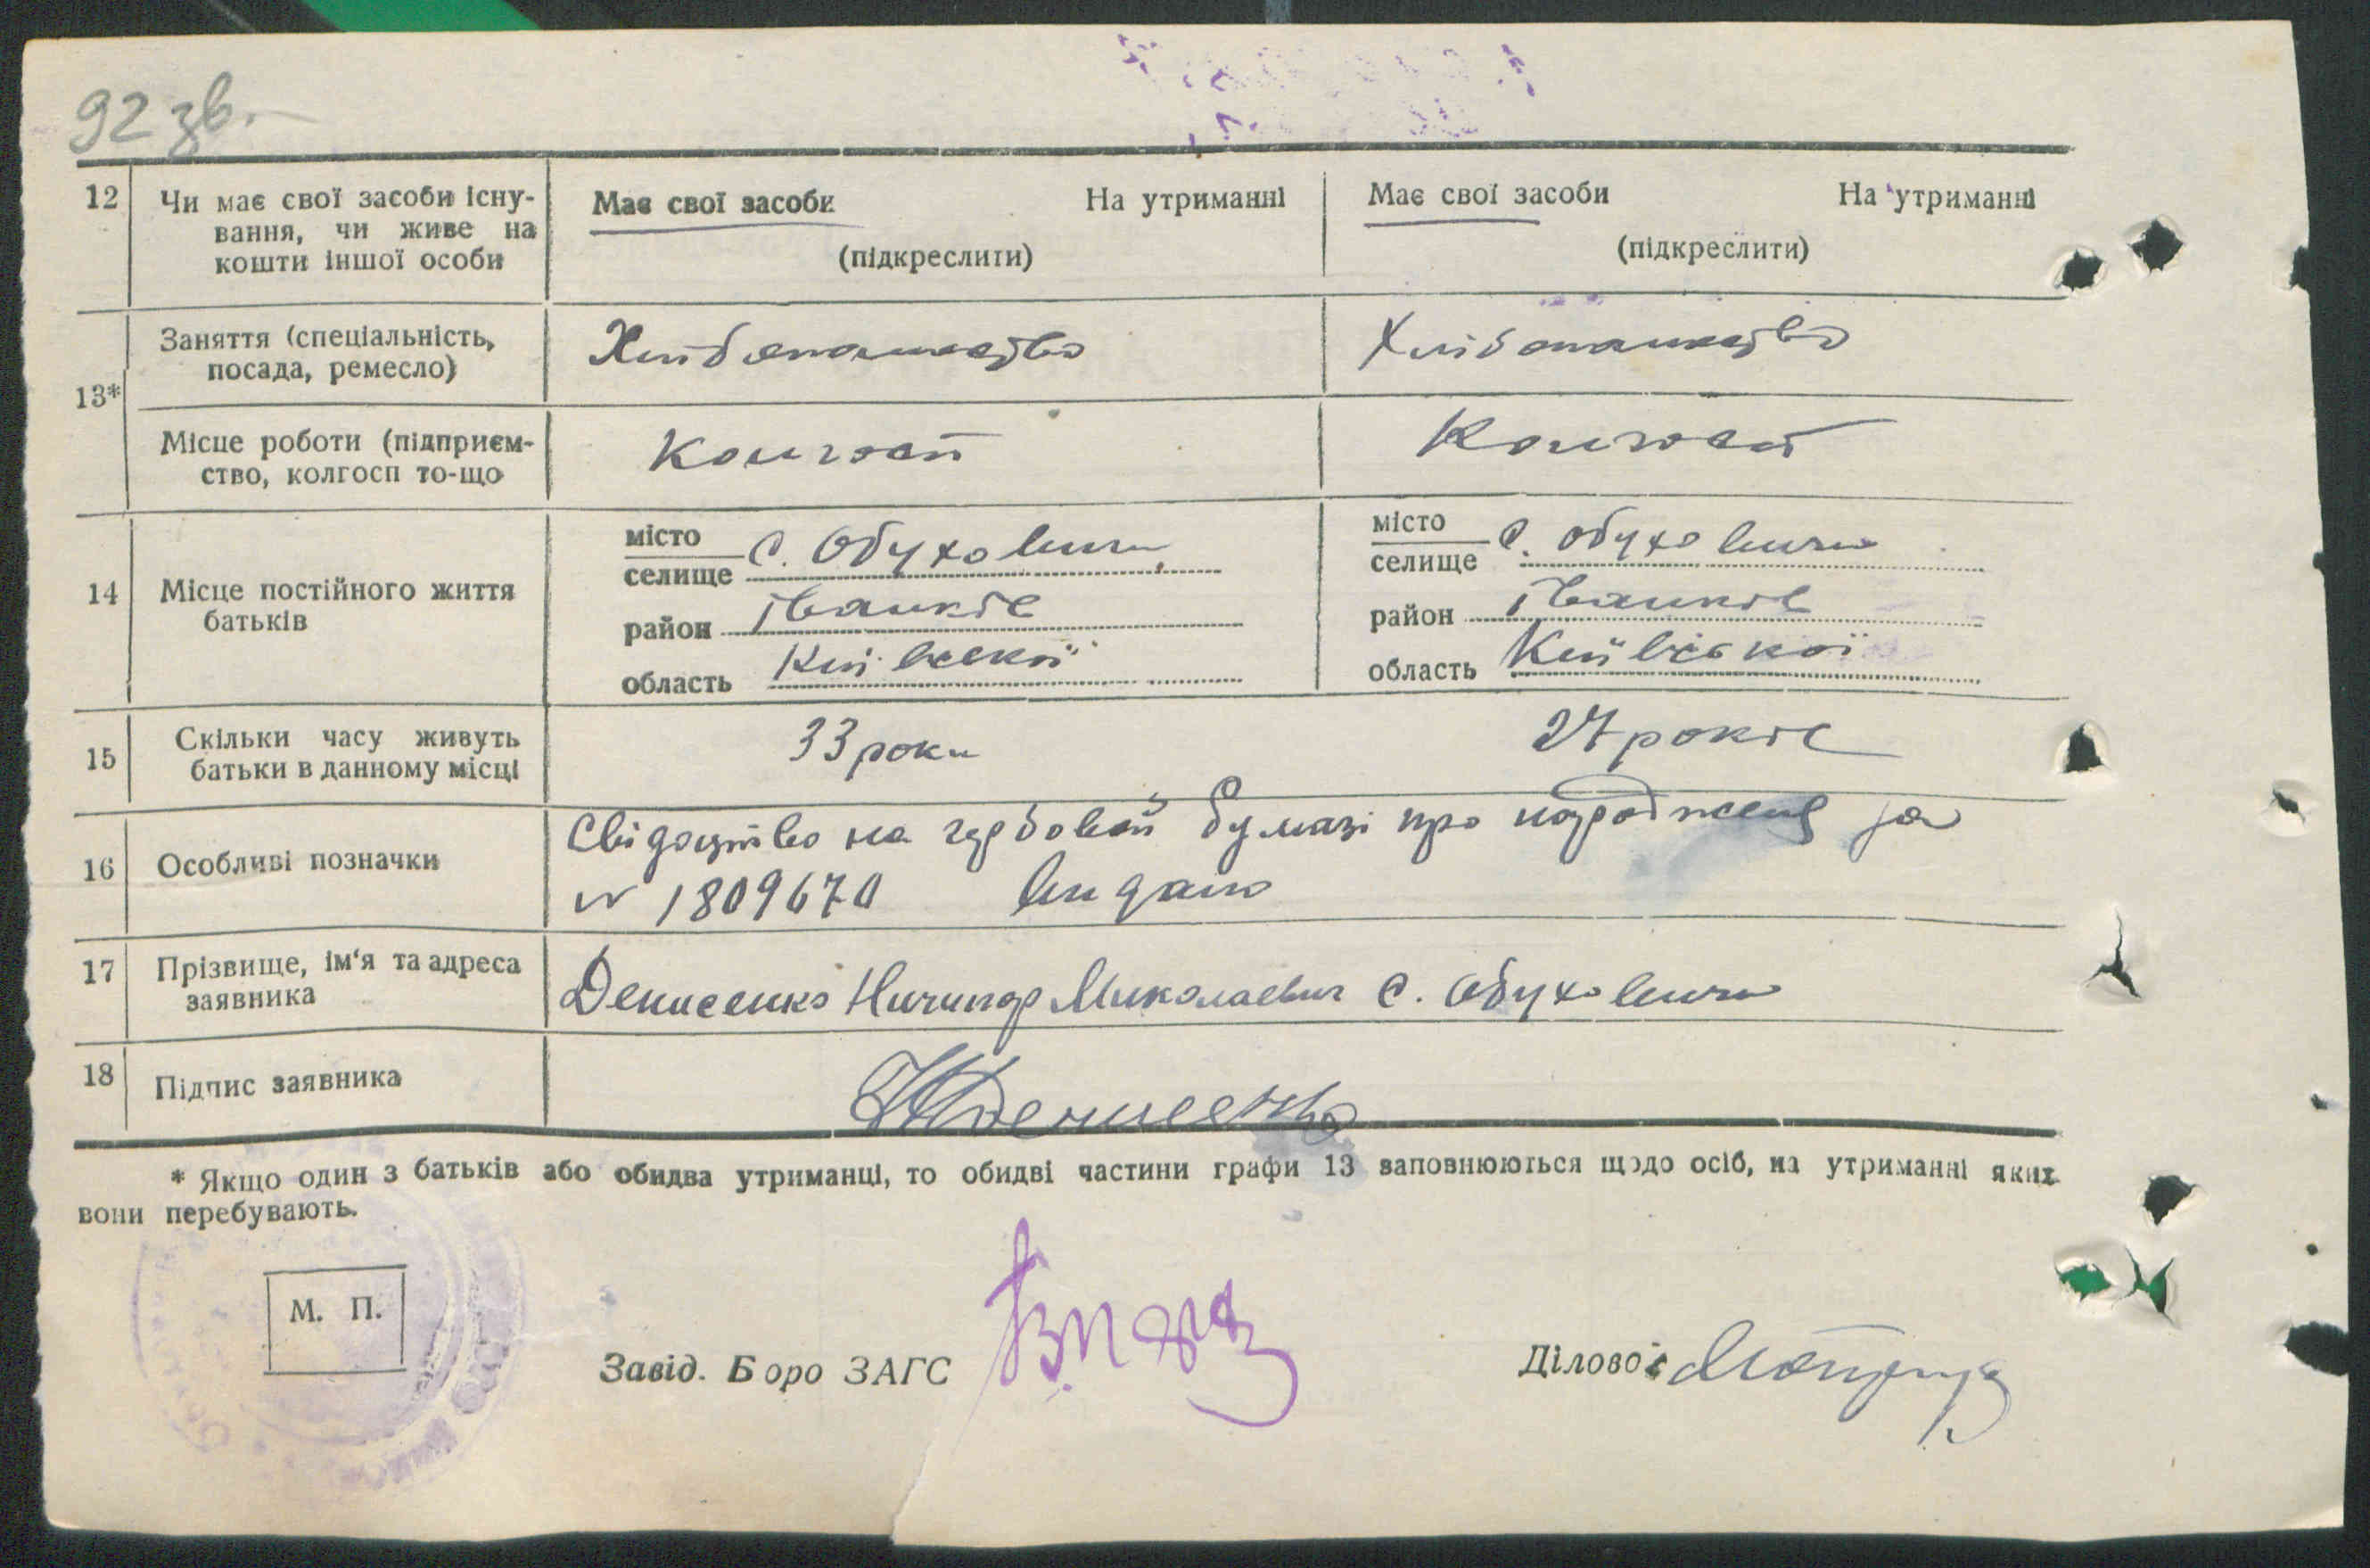 92 зв.
12 Чи має свої засоби існу- Має свої засоби На утриманні Має свої засоби На утриманні
вання, чи живе на
кошти іншої особи (підкреслити) (підкреслити)
13* Заняття (спеціальність, Хлібопашество Хлібопашество
посада, ремесло)
Місце роботи (підприєм- Колгосп Колгосп
ство, колгосп то-що
14 Місце постійного життя
батьків
місто
селище с. Обуховичі
район Іванків
область Київської
місто
селище с. Обуховичі
район Іванків
область Київської
15 Скільки часу живуть 33 роки 27 років
батьки в данному місці
16 Особливі позначки Свідоцтво на гербовой бумазі про народження за
№ 1809670 видано
17 Прізвище, ім'я та адреса Денисенко Ничипор Миколаевич с. Обуховичі
заявника
18 Підпис заявника НДенисенко
* Якщо один з батьків або обидва утриманці, то обидві частини графи 13 заповнюються щодо осіб, на утриманні яких
вони перебувають.
М. П.
Завід. Бюро ЗАГС
Діловод